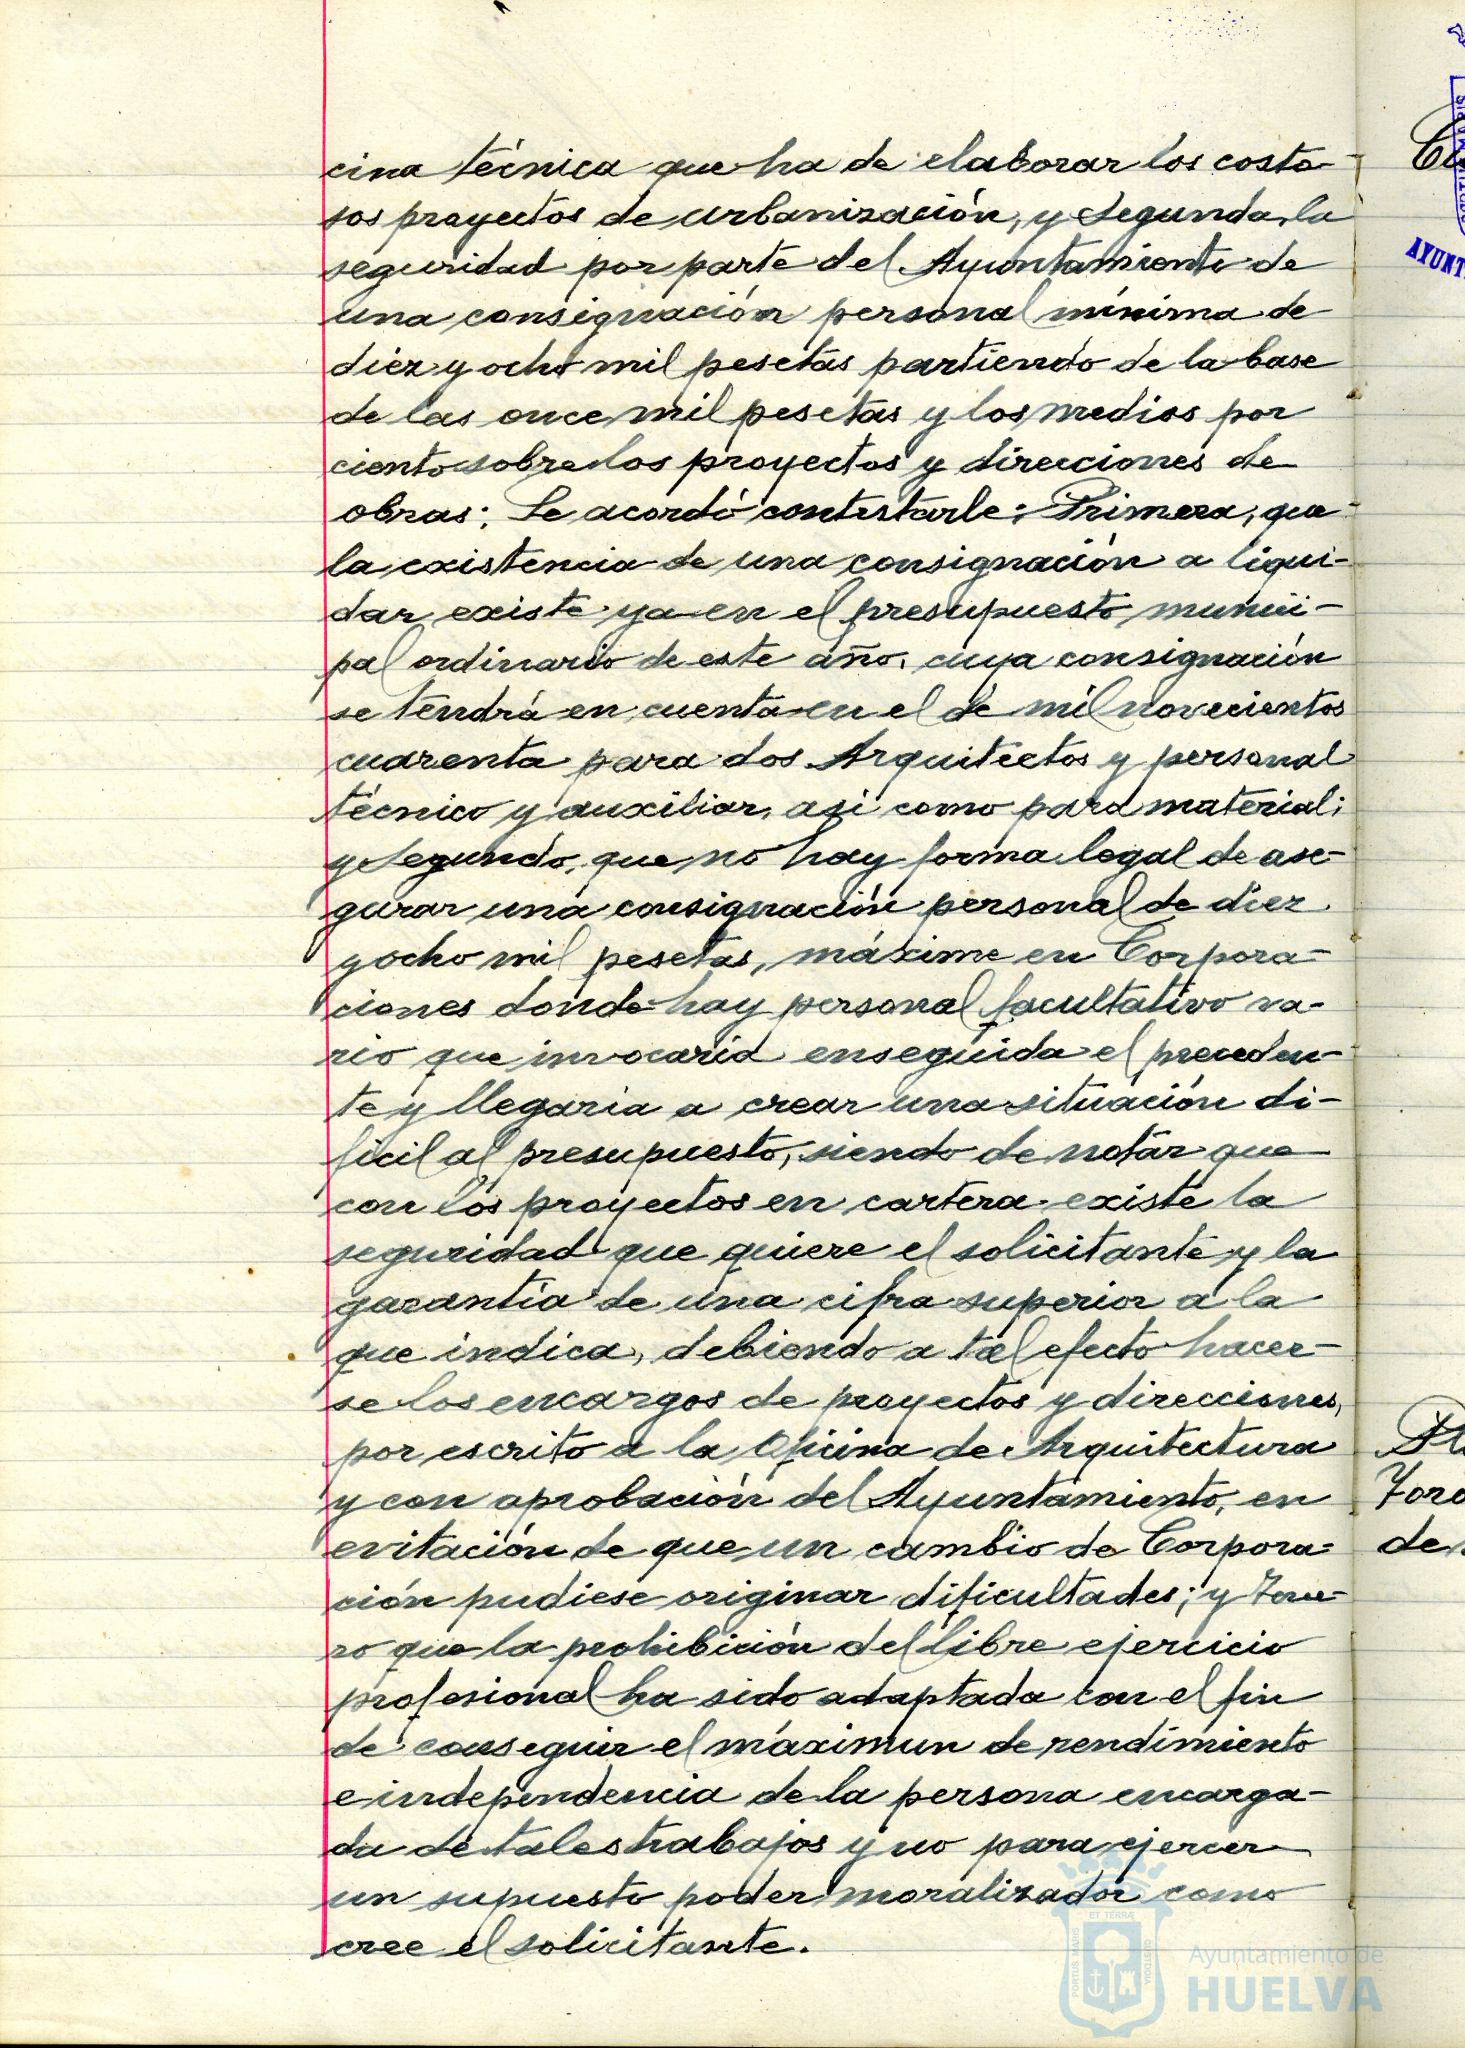 cina técnica que ha de elaborar los costo-
sos proyectos de urbanización, y Segunda, la
seguridad por parte del Ayuntamiento de
una consignación personal mínima de
diez y ocho mil pesetas partiendo de la base
de las once mil pesetas y los medios por
ciento sobre los proyectos y direcciones de
obras; Se acordó contestarle: Primera, que
la existencia de una consignación a liqui-
dar existe ya en el presupuesto munici-
pal ordinario de este año, cuya consignación
se tendrá en cuenta en el de mil novecientos
cuarenta para dos Arquitectos y personal
técnico y auxiliar, asi como para material;
y Segundo, que no hay forma legal de ase-
gurar una consignación personal de diez
y ocho mil pesetas, máxime en Corpora-
ciones donde hay personal facultativo va-
rio que invocaria enseguida el preceden-
te y llegaria a crear una situación di-
ficil al presupuesto, siendo de notar que
con los proyectos en cartera existe la
seguridad que quiere el solicitante y la
garantía de una cifra superior a la
que indica, debiendo a tal efecto hacer-
se los encargos de proyectos y direcciones,
por escrito a la Oficina de Arquitectura
y con aprobación del Ayuntamiento, en
evitación de que un cambio de Corpora-
ción pudiese originar dificultades; y Terce-
ro que la prohibición del libre ejercicio
profesional ha sido adaptada con el fin
de conseguir el máximun de rendimiento
e independencia de la persona encarga-
da de tales trabajos y no para ejercer
un supuesto poder moralizador como
cree el solicitante.
AYUNT
de
Ayuntamiento de
HUELVA